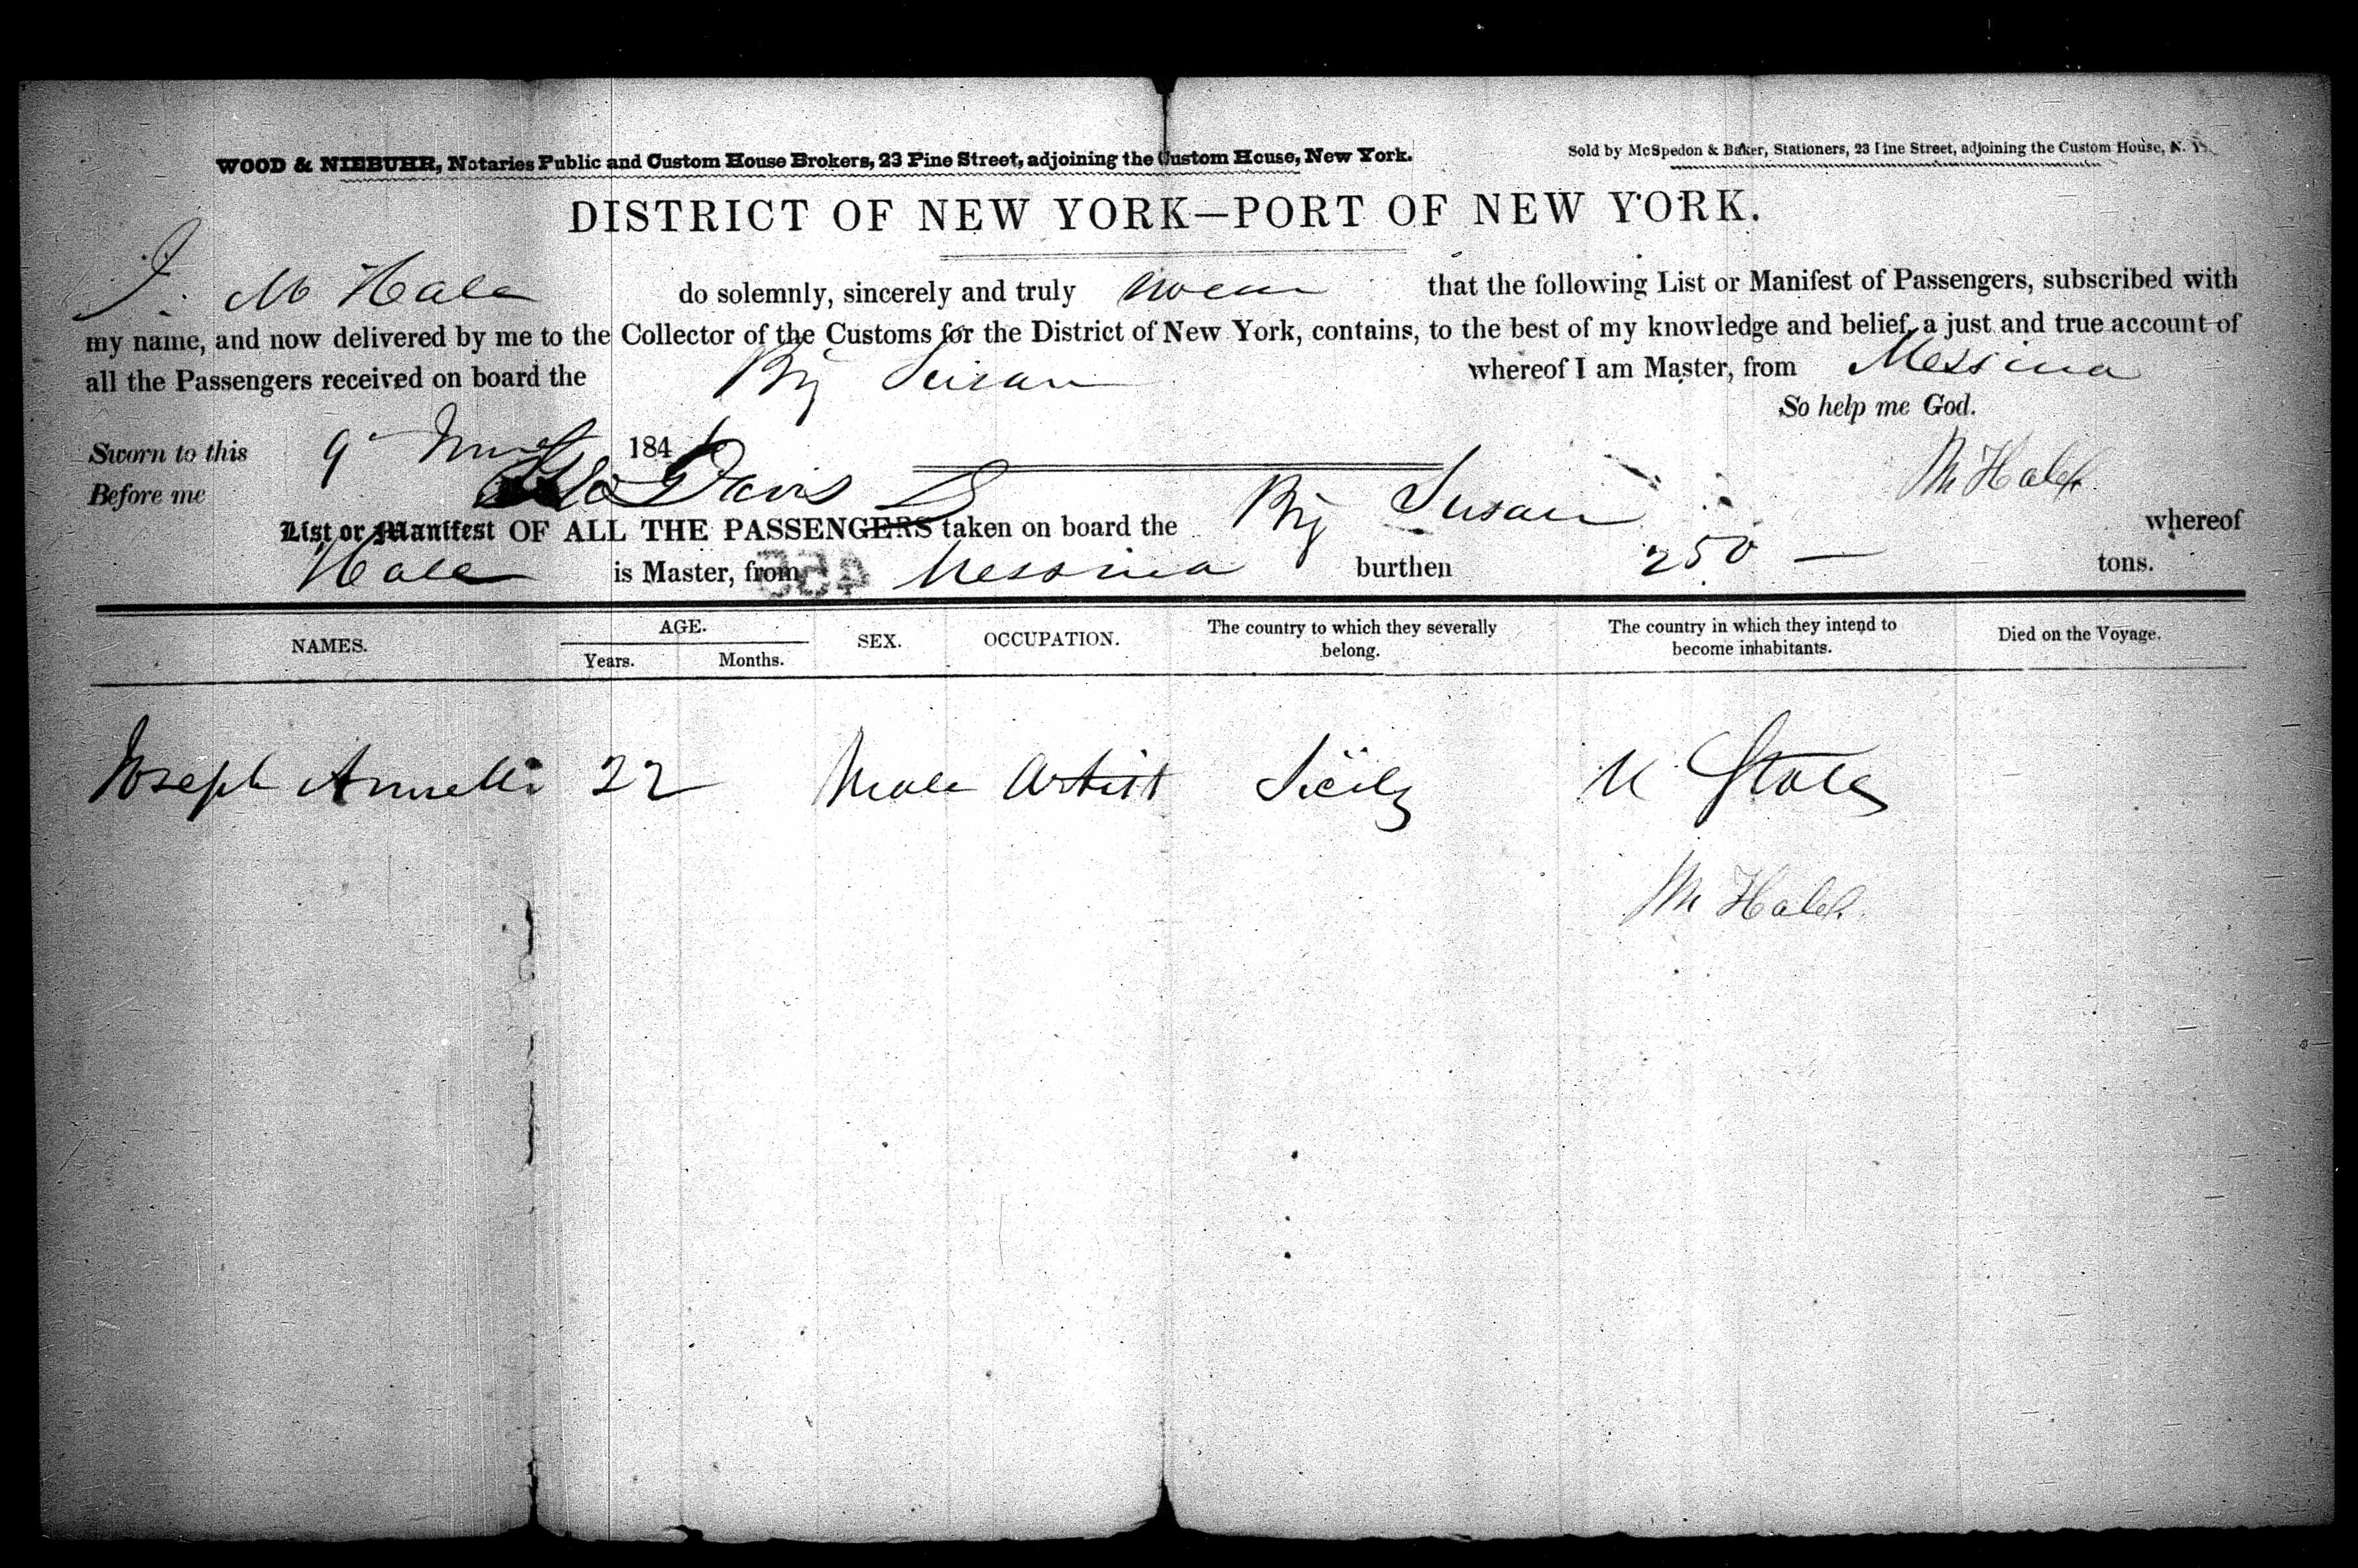 WOOD & NIEBUHR, Notaries Public and Custom House Brokers, 23 Pine Street, adjoining the Custom House, New York.
Sold by McSpedon & Baker, Stationers, 23 Pine Street, adjoining the Custom House, N. Y.
DISTRICT OF NEW YORK—PORT OF NEW YORK.
I. M Hale do solemnly, sincerely and truly swear that the following List or Manifest of Passengers, subscribed with
my name, and now delivered by me to the Collector of the Customs for the District of New York, contains, to the best of my knowledge and belief, a just and true account of
all the Passengers received on board the Brig Susan whereof I am Master, from Messina
So help me God.
Sworn to this 9 184
Before me Davis M Hale
List or Manifest OF ALL THE PASSENGERS taken on board the Brig Susan whereof
Hale is Master, from Messina burthen 250 — tons.
NAMES. AGE. Years. Months. SEX. OCCUPATION. The country to which they severally belong. The country in which they intend to become inhabitants. Died on the Voyage.
Joseph 22 Male Artist Sicily U States
M Hale